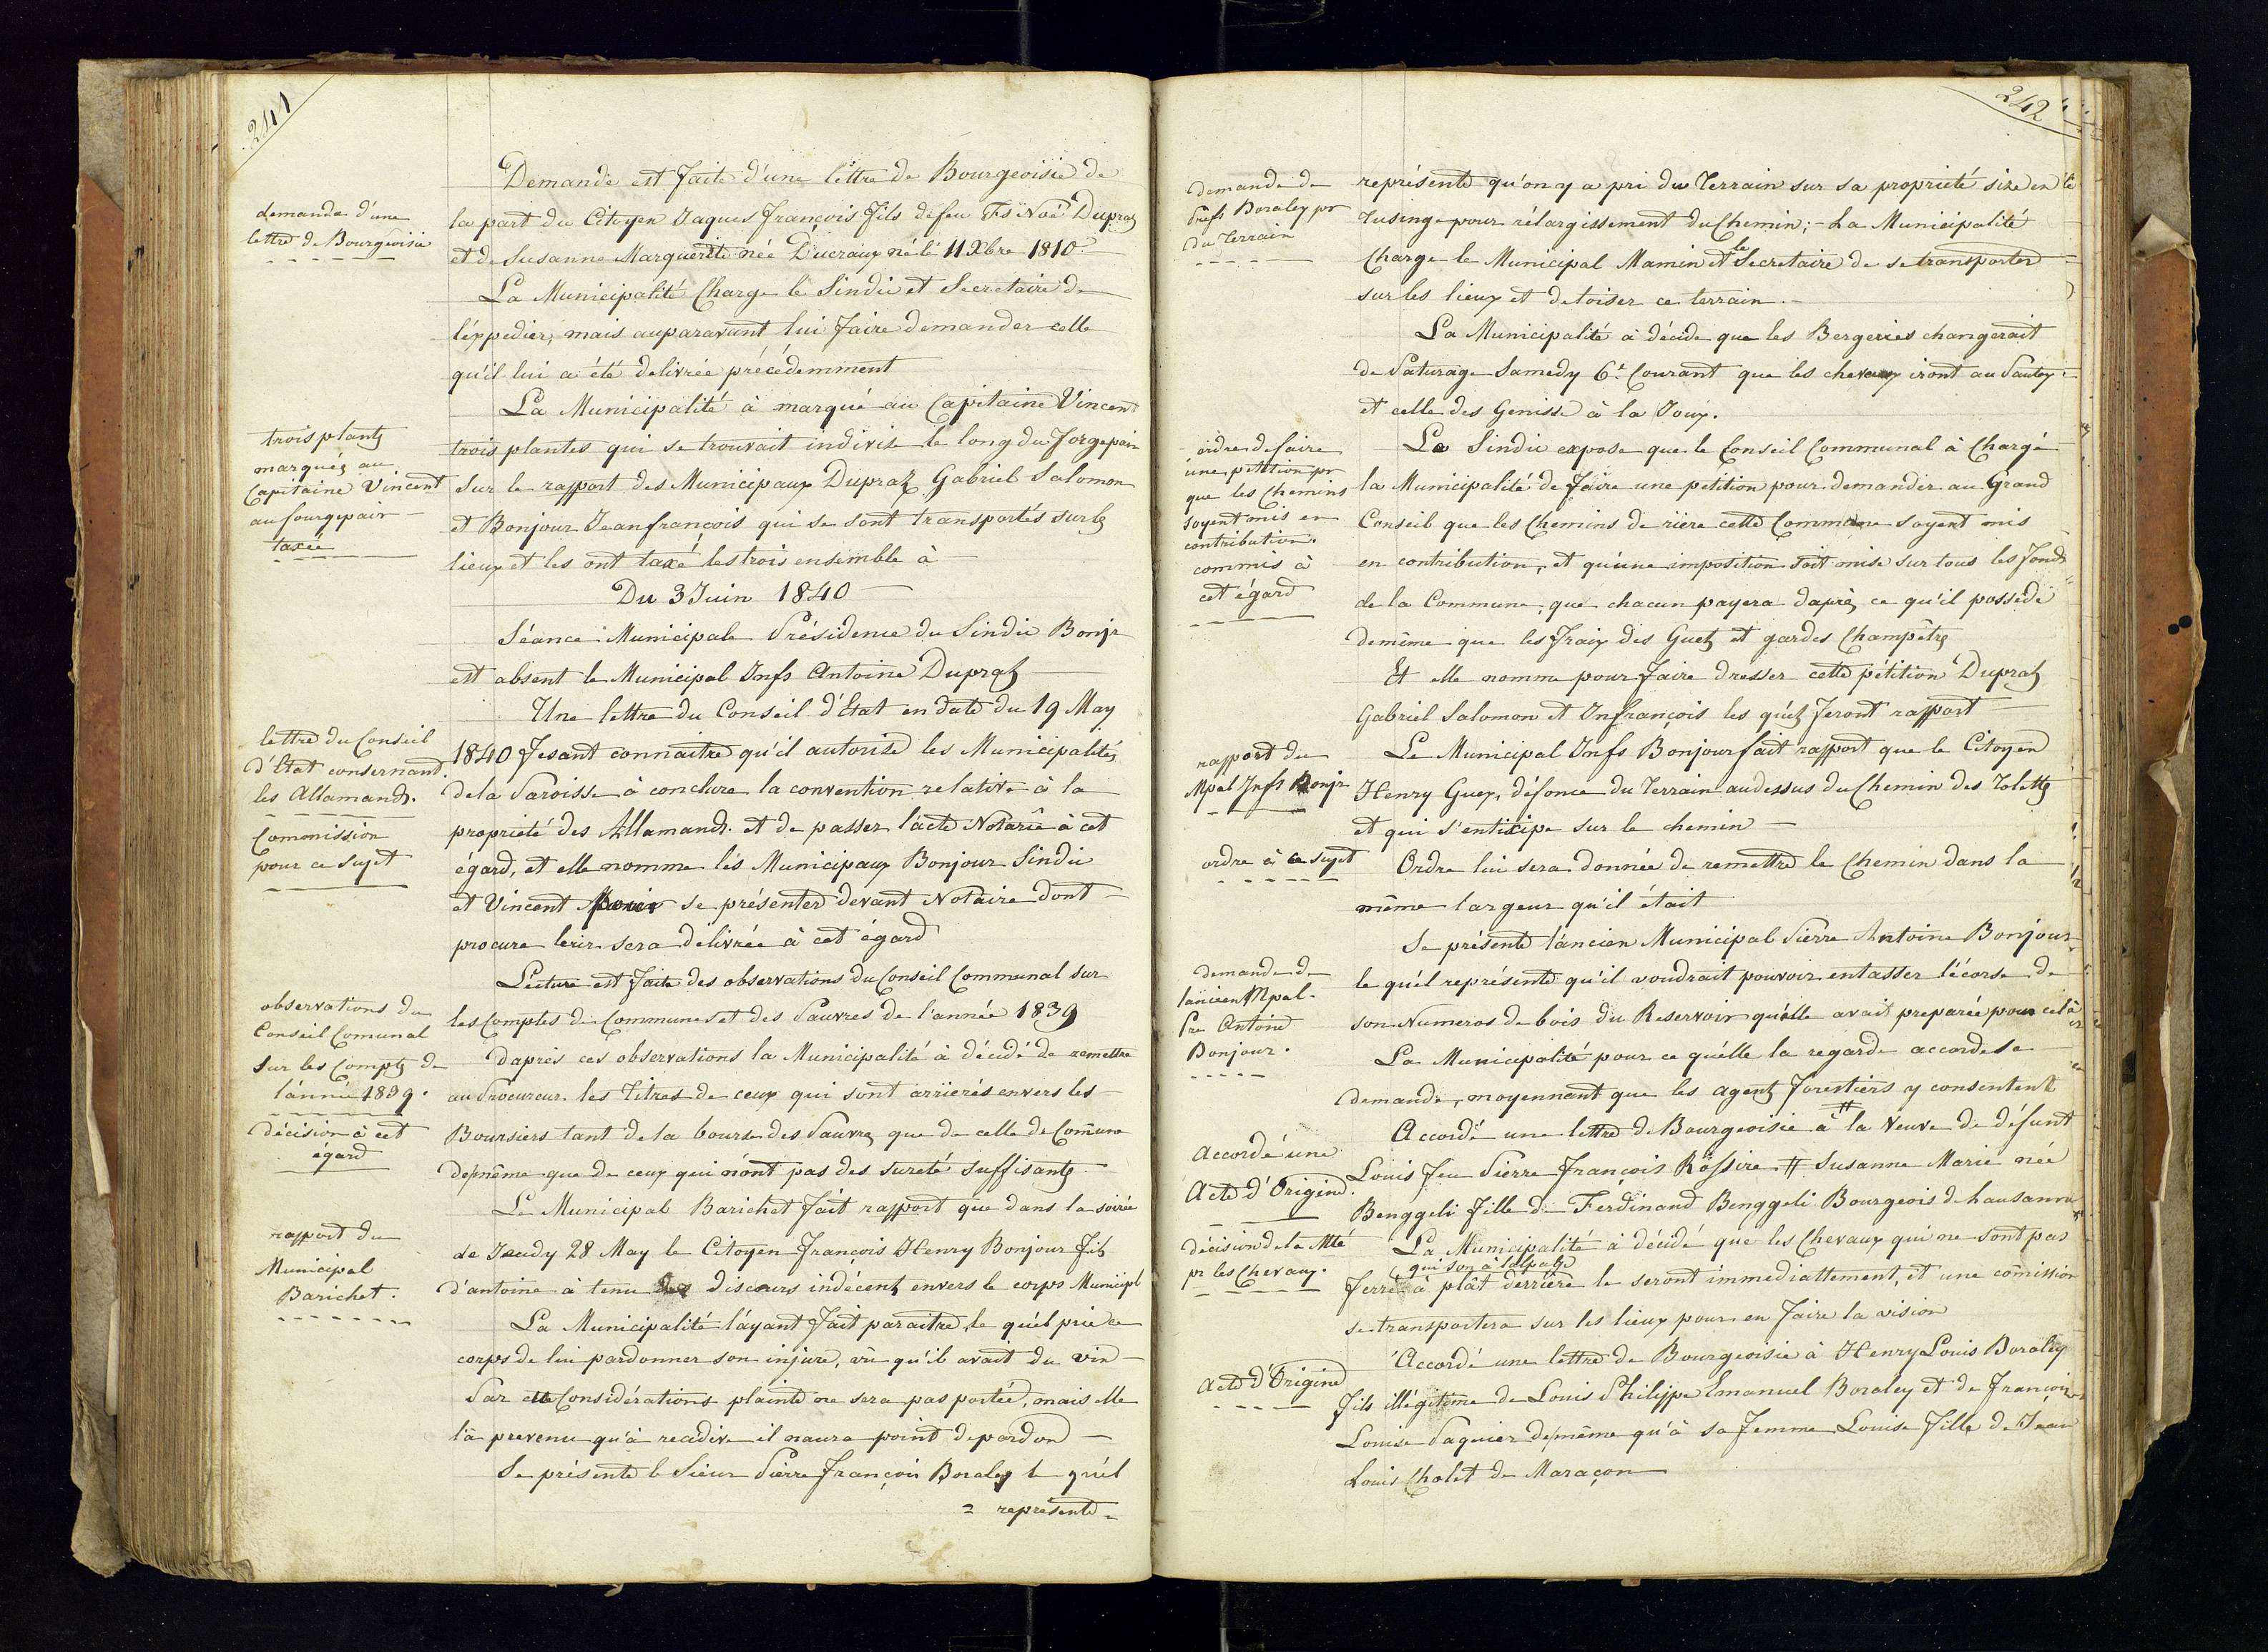 241
demande d'une
lettre de Bourgeoisie
trois plantz
marquéz au
Capitaine Vincent
au fourgepair
taxée
lettre du Conseil
d'Etat consernant
les Allamands.
Commission
pour ce sujet
observations du
Conseil Comunal
sur les Comptz de
l'année 1839.
décision à cet
égard
rapport du
Municipal
Barichet.
Demande est faite d'une lettre de Bourgeoisie de
la part du Citoyen Jaques François fils de feu Fs Noé Dupraz
et de Susanne Marguerite née Ducraux né le 11 Xbre 1810
La Municipalité Charge le Sindic et Secretaire de
léxpedier, mais auparavant lui faire demander celle
qu'il lui a été delivrée précédemment
La Municipalité à marqué au Capitaine Vincent
trois plantes qui se trouvait indivise le long du Forgepair
sur le rapport des Municipaux Dupraz Gabriel Salomon
et Bonjour Jeanfrançois qui se sont transportés surles
lieux et les ont taxé les trois ensemble à
Du 3 Juin 1840
Séance Municipale Présidence du Sindic Bonjr
est absent le Municipal Jnfs Antoine Dupraz
Une lettre du Conseil d'Etat en date du 19 May
1840 fesant connaitre qu'il autorise les Municipalités
de la Paroisse à conclure la convention relative à la
propriété des Allamands. et de passer lacte Notarié à cet
égard, et elle nomme lés Municipaux Bonjour Sindic
et Vincent pour se présenter devant Notaire dont
procure leur sera délivrée à cet égard
Lecture est faite des observations du Conseil Communal sur
les Comptes de Communes et des Pauvres de l'année 1839
daprès ces observations la Municipalité à décidé de remettre
au Procureur les Titres de ceux qui sont arriierés envers les
Boursiers tant de la bourse des Pauvres que de celle de Comune
demême que de ceux qui n'ont pas des sureté suffisantz
Le Municipal Barichet fait rapport que dans la soirée
de Jeudy 28 May le Citoyen François Henry Bonjour fils
d'antoine à tenu des discours indécentz envers le corps Municipl
La Municipalité l'áyant fait paraitre, le quél prie ce
corps de lui pardonner son injure, vû qu'il avait du vin
Par cette Considérations plainte ne sera pas portée, mais elle
l'à prevenu qu'à recidive il naura point de pardon
Se présente le Sieur Pierre François Boraley le quél
= représente =
242
demande de
Prefs Boraley pr
du Terrain
ordre de faire
une pétition pr
que les Chemins
soyent mis en
contribution.
commis à
cet égard
rapport du
Mpal Jnfs Bonjr
ordre à ce sujet
demande de
l'ancien Mpal.
Pre Antoine
Bonjour.
accordé une
Acte d'Origine.
décision de la Mté
pr les Chevaux.
acte d'Origine
représente qu'on y a pri du Terrain sur sa proprieté size en le
Tusinge pour rélargissement du Chemin; - La Municipalité
Charge le Municipal Mamin et le Secretaire de se transporter
sur les lieux et detoiser ce terrain.
La Municipalité à décide que les Bergeries changerait
de Paturage Samedy 6.e Courant que les chevaux iront au Pautey
et celle des Genisse à la Joux.
Le Sindic expose que le Conseil Communal à Chargé
la Municipalité de faire une pétition pour demander au Grand
Conseil que les Chemins de riére cette Commune soyent mis
en contribution, et qu'une imposition soit mise sur tous les fonds
de la Commune, que chacun payera daprès ce qu'il possède
demême que les fraix des Guetz et gardes Champêtres
Et elle nomme pour faire dresser cette pétition Dupraz
Gabriel Salomon et Jnfrançois les quéls feront rapport
Le Municipal Jnfs Bonjour fait rapport que le Citoyen
Henry Guex, défonce du Terrain au dessus du Chemin des Tolettes
et qui s'enticipe sur le chemin
Ordre lui sera donnée de remettre le Chemin dans la
même largeur qu'il était
Se présente l'áncien Municipal Pierre Antoine Bonjour
le quél représente qu'il voudrait pouvoir entasser l'écorse de
son Numeros de bois du Reservoir quélle avait preparée pour celà
La Municipalité pour ce quélle la regarde accorde sa
demande, moyennant que les agentz forestiers y consentent
Accordé une lettre de Bourgeoisie à # la Veuve de défunt
Louis feu Pierre François Rössire # Susanne Marie née
Benggeli fille de Ferdinand Benggeli Bourgeois de Lausanne
La Municipalité à décidé que les Chevaux qui ne sont pas
(qui son à lalpage
ferré à plât derrière le seront immediattement, et une comission
se transportera sur les lieux pour en faire la vision
Accordé une lettre de Bourgeoisie à Henry Louis Boraley
fils illégitime de Louis Philippe Emanuel Boraley et de Françoise
Louise Paquier demême qu'à sa femme Louise fille de Jean
Louis Cholet de Maraçon